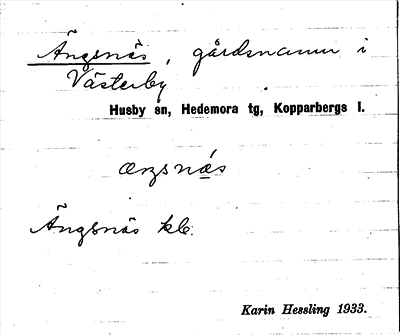 Ängsnäs, gårdsnamn i
Västerby
Husby sn, Hedemora tg, Kopparbergs l.
Ängsnäs kb.
Karin Hessling 1933.